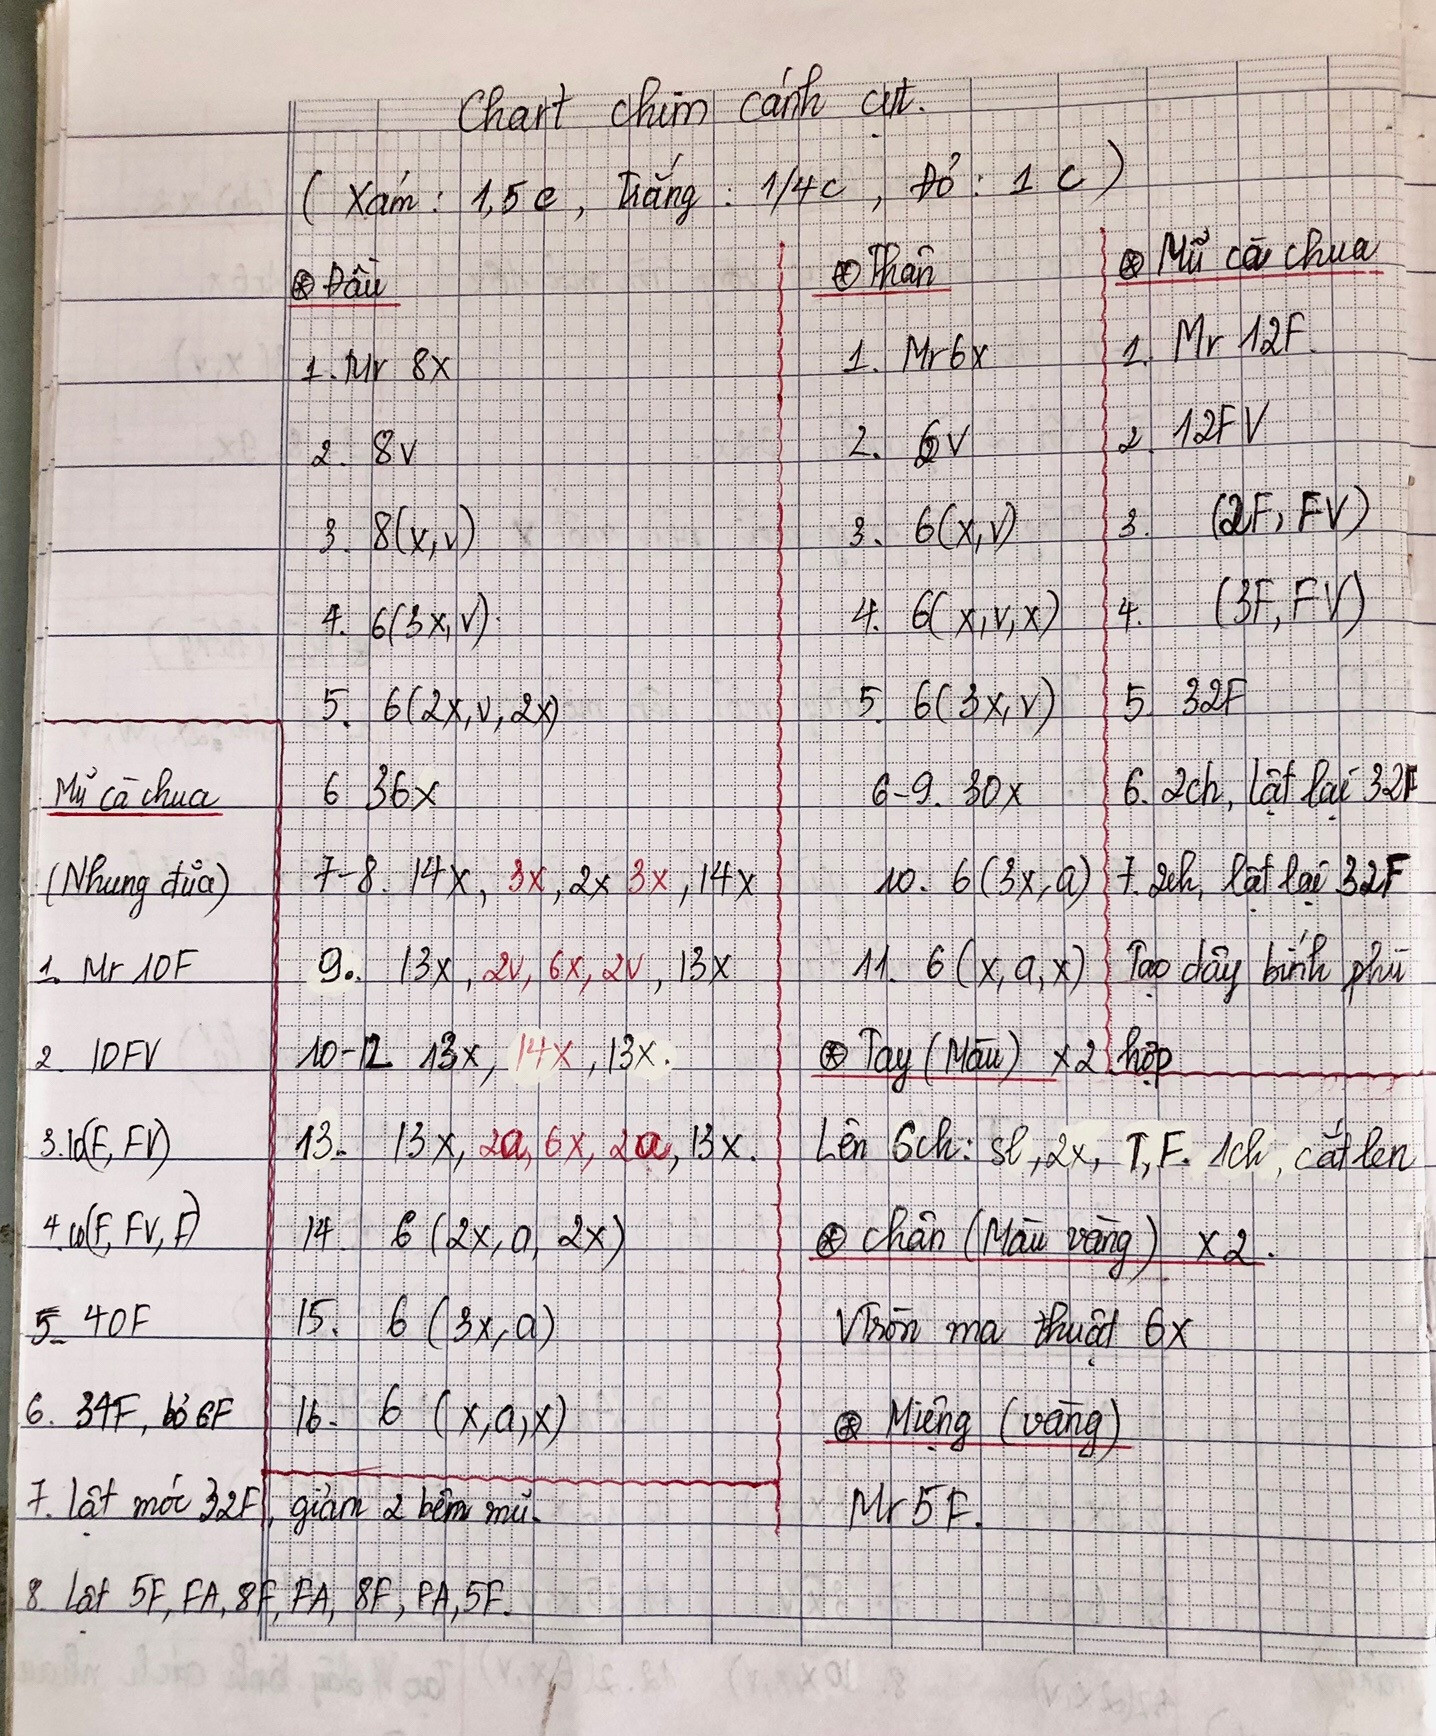 Chart chim cánh cụt.
(Xám: 1,5c, Trắng: 1/4c, Đỏ: 1 c)
Đầu
1. Mr 8x
2. 8v
3. 8(x,v)
4. 6(3x,v).
5. 6(2x,v,2x)
6 36x
7-8. 14x, 3x, 2x 3x, 14x
9. 13x, 2v, 6x, 2v, 13x
10-12 13x, 14x, 13x.
13. 13x, 2a, 6x, 2a, 13x.
14. 6 (2x, a, 2x)
15. 6 (3x, a)
16. 6 (x,a,x)
Thân
1. Mr6x
2. 6v
3. 6(x,v)
4. 6(x,v,x)
5. 6(3x,v)
6-9. 30x
10. 6(3x,a)
11. 6(x,a,x)
Tay (Màu) x2
Lên 6ch: sl, 2x, T, F. 1ch, cắt len
Chân (Màu vàng) x2.
Vtròn ma thuật 6x
Miệng (vàng)
Mr 5F.
Mũ cà chua
1. Mr 12F.
2. 12FV
3. (2F, FV)
4. (3F, FV)
5. 32F
6. 2ch, lật lại 32F
7. 2ch, lật lại 32F
Tạo dây bính phù
hợp
Mũ cà chua
(Nhung đũa)
1. Mr 10F
2. 10FV
3. 10(F, FV)
4. 10(F, FV, F)
5. 40F
6. 34F, bỏ 6F
7. lật móc 32F, giảm 2 bêm mũ.
8. Lật 5F, FA, 8F, FA, 8F, FA, 5F.